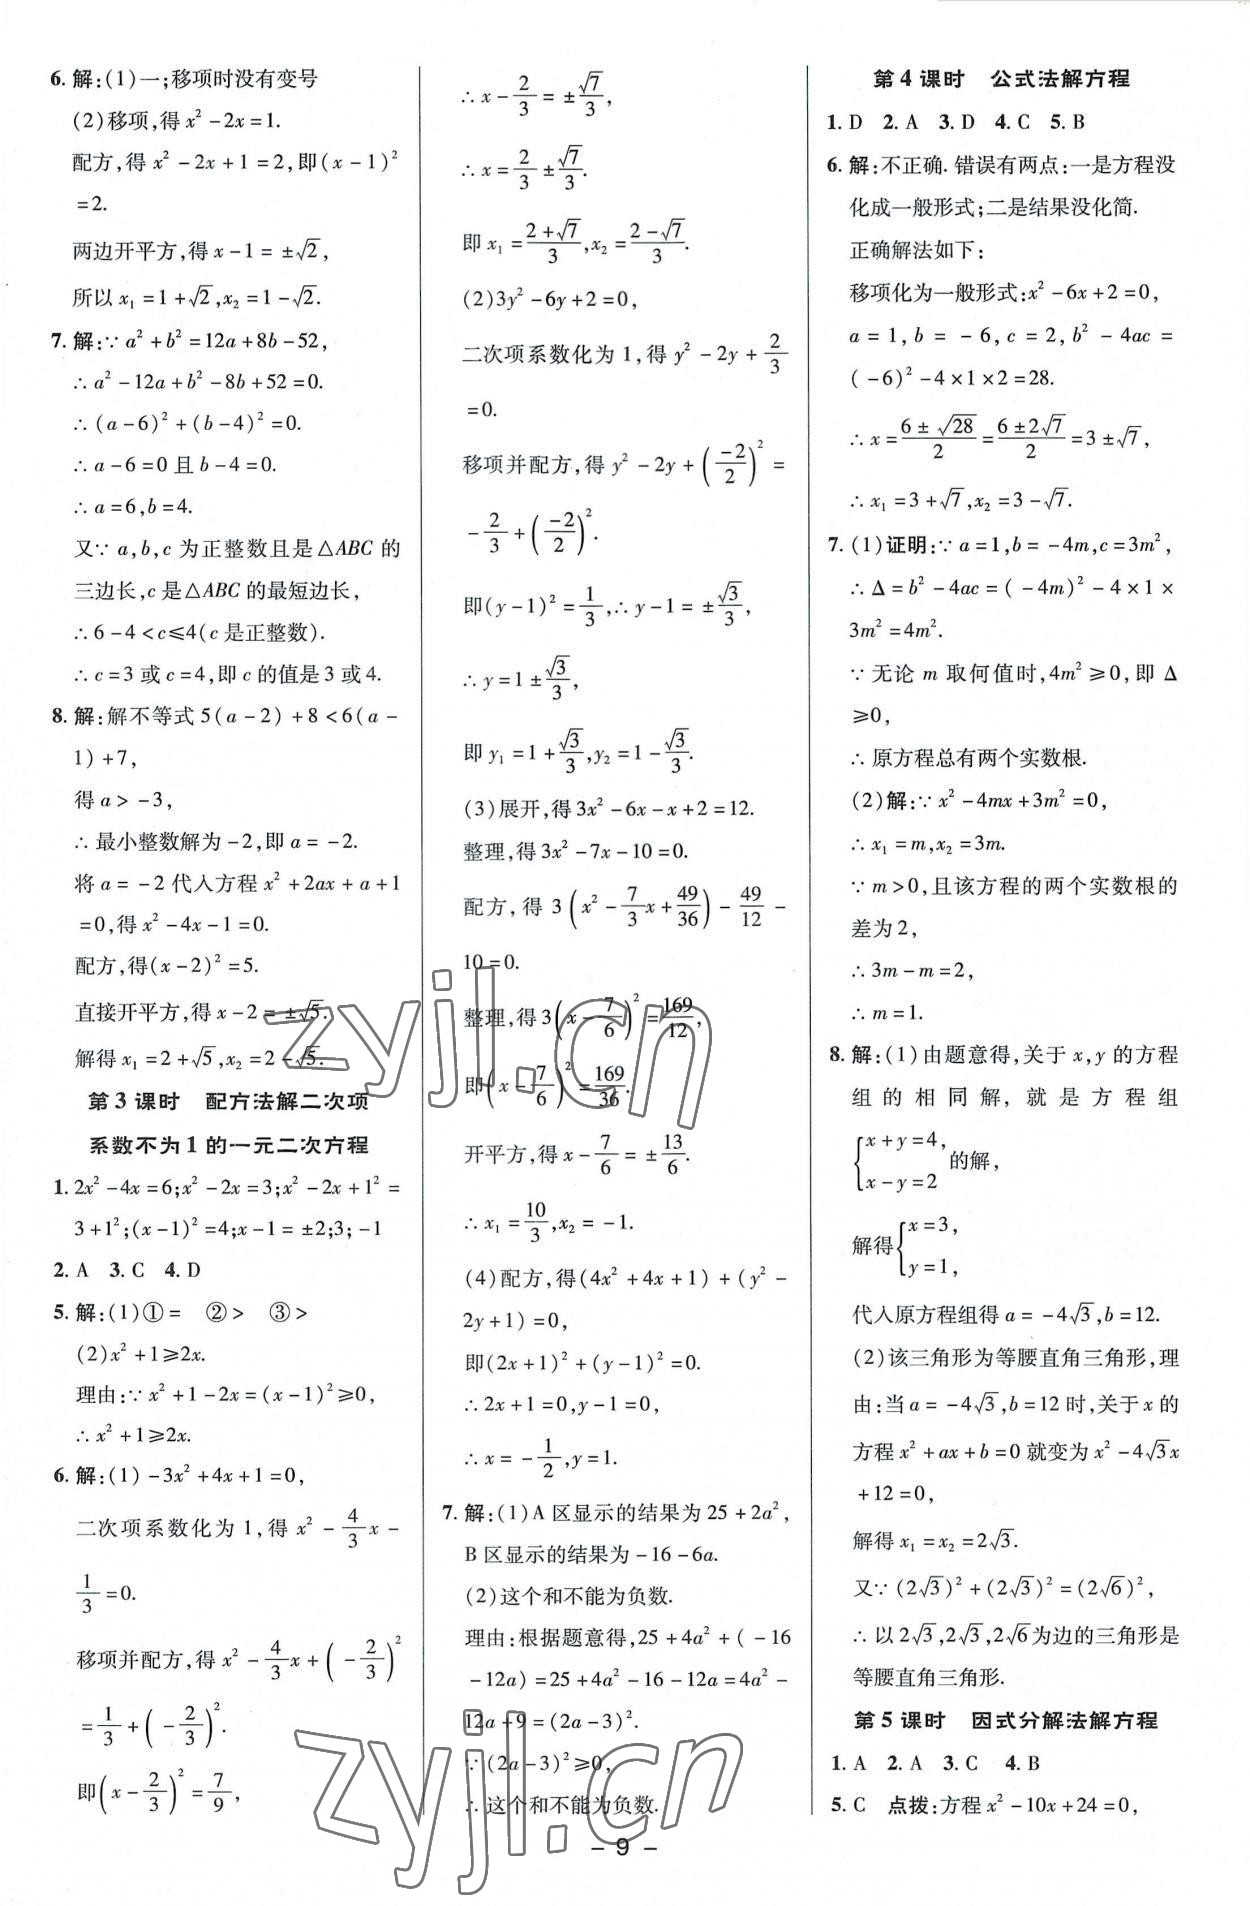 6. 解:(1)一;移项时没有变号
(2)移项,得 x² - 2x = 1.
配方,得 x² - 2x + 1 = 2,即(x - 1)²
= 2.
两边开平方,得 x - 1 = ±√2,
所以 x₁ = 1 + √2, x₂ = 1 - √2.
7. 解:∵ a² + b² = 12a + 8b - 52,
∴ a² - 12a + b² - 8b + 52 = 0.
∴ (a - 6)² + (b - 4)² = 0.
∴ a - 6 = 0 且 b - 4 = 0.
∴ a = 6, b = 4.
又∵ a,b,c 为正整数且是△ABC 的
三边长,c 是△ABC 的最短边长,
∴ 6 - 4 < c ≤ 4(c 是正整数).
∴ c = 3 或 c = 4,即 c 的值是 3 或 4.
8. 解:解不等式 5(a - 2) + 8 < 6(a -
1) + 7,
得 a > -3,
∴ 最小整数解为 -2,即 a = -2.
将 a = -2 代入方程 x² + 2ax + a + 1
= 0,得 x² - 4x - 1 = 0.
配方,得(x - 2)² = 5.
直接开平方,得 x - 2 = ±√5.
解得 x₁ = 2 + √5, x₂ = 2 - √5.
第 3 课时 配方法解二次项
系数不为 1 的一元二次方程
1. 2x² - 4x = 6; x² - 2x = 3; x² - 2x + 1² =
3 + 1²; (x - 1)² = 4; x - 1 = ±2; 3; -1
2. A 3. C 4. D
5. 解:(1)① = ② > ③ >
(2)x² + 1 ≥ 2x.
理由:∵ x² + 1 - 2x = (x - 1)² ≥ 0,
∴ x² + 1 ≥ 2x.
6. 解:(1) -3x² + 4x + 1 = 0,
二次项系数化为 1,得 x² - 4/3 x -
1/3 = 0.
移项并配方,得 x² - 4/3 x + (-2/3)²
= 1/3 + (-2/3)².
即(x - 2/3)² = 7/9,
∴ x - 2/3 = ±√7/3,
∴ x = 2/3 ± √7/3.
即 x₁ = (2+√7)/3, x₂ = (2-√7)/3.
(2)3y² - 6y + 2 = 0,
二次项系数化为 1,得 y² - 2y + 2/3
= 0.
移项并配方,得 y² - 2y + (-2/2)² =
-2/3 + (-2/2)².
即(y - 1)² = 1/3, ∴ y - 1 = ±√3/3,
∴ y = 1 ± √3/3,
即 y₁ = 1 + √3/3, y₂ = 1 - √3/3.
(3)展开,得 3x² - 6x - x + 2 = 12.
整理,得 3x² - 7x - 10 = 0.
配方,得 3(x² - 7/3 x + 49/36) - 49/12 -
10 = 0.
整理,得 3(x - 7/6)² = 169/12,
即(x - 7/6)² = 169/36.
开平方,得 x - 7/6 = ±13/6.
∴ x₁ = 10/3, x₂ = -1.
(4)配方,得(4x² + 4x + 1) + (y² -
2y + 1) = 0,
即(2x + 1)² + (y - 1)² = 0.
∴ 2x + 1 = 0, y - 1 = 0,
∴ x = -1/2, y = 1.
7. 解:(1)A 区显示的结果为 25 + 2a²,
B 区显示的结果为 -16 - 6a.
(2)这个和不能为负数.
理由:根据题意得,25 + 4a² + (-16
- 12a) = 25 + 4a² - 16 - 12a = 4a² -
12a + 9 = (2a - 3)².
∵ (2a - 3)² ≥ 0,
∴ 这个和不能为负数.
第 4 课时 公式法解方程
1. D 2. A 3. D 4. C 5. B
6. 解:不正确. 错误有两点:一是方程没
化成一般形式;二是结果没化简.
正确解法如下:
移项化为一般形式:x² - 6x + 2 = 0,
a = 1, b = -6, c = 2, b² - 4ac =
(-6)² - 4 × 1 × 2 = 28.
∴ x = (6 ± √28)/2 = (6 ± 2√7)/2 = 3 ± √7,
∴ x₁ = 3 + √7, x₂ = 3 - √7.
7. (1)证明:∵ a = 1, b = -4m, c = 3m²,
∴ Δ = b² - 4ac = (-4m)² - 4 × 1 ×
3m² = 4m².
∵ 无论 m 取何值时,4m² ≥ 0,即 Δ
≥ 0,
∴ 原方程总有两个实数根.
(2)解:∵ x² - 4mx + 3m² = 0,
∴ x₁ = m, x₂ = 3m.
∵ m > 0,且该方程的两个实数根的
差为 2,
∴ 3m - m = 2,
∴ m = 1.
8. 解:(1)由题意得,关于 x,y 的方程
组的相同解,就是方程组
{x + y = 4,
x - y = 2 的解,
解得{x = 3,
y = 1,
代入原方程组得 a = -4√3, b = 12.
(2)该三角形为等腰直角三角形,理
由:当 a = -4√3, b = 12 时,关于 x 的
方程 x² + ax + b = 0 就变为 x² - 4√3x
+ 12 = 0,
解得 x₁ = x₂ = 2√3.
又∵ (2√3)² + (2√3)² = (2√6)²,
∴ 以 2√3,2√3,2√6为边的三角形是
等腰直角三角形.
第 5 课时 因式分解法解方程
1. A 2. A 3. C 4. B
5. C 点拨:方程 x² - 10x + 24 = 0,
- 9 -
zyjl.cn
zyjl.cn